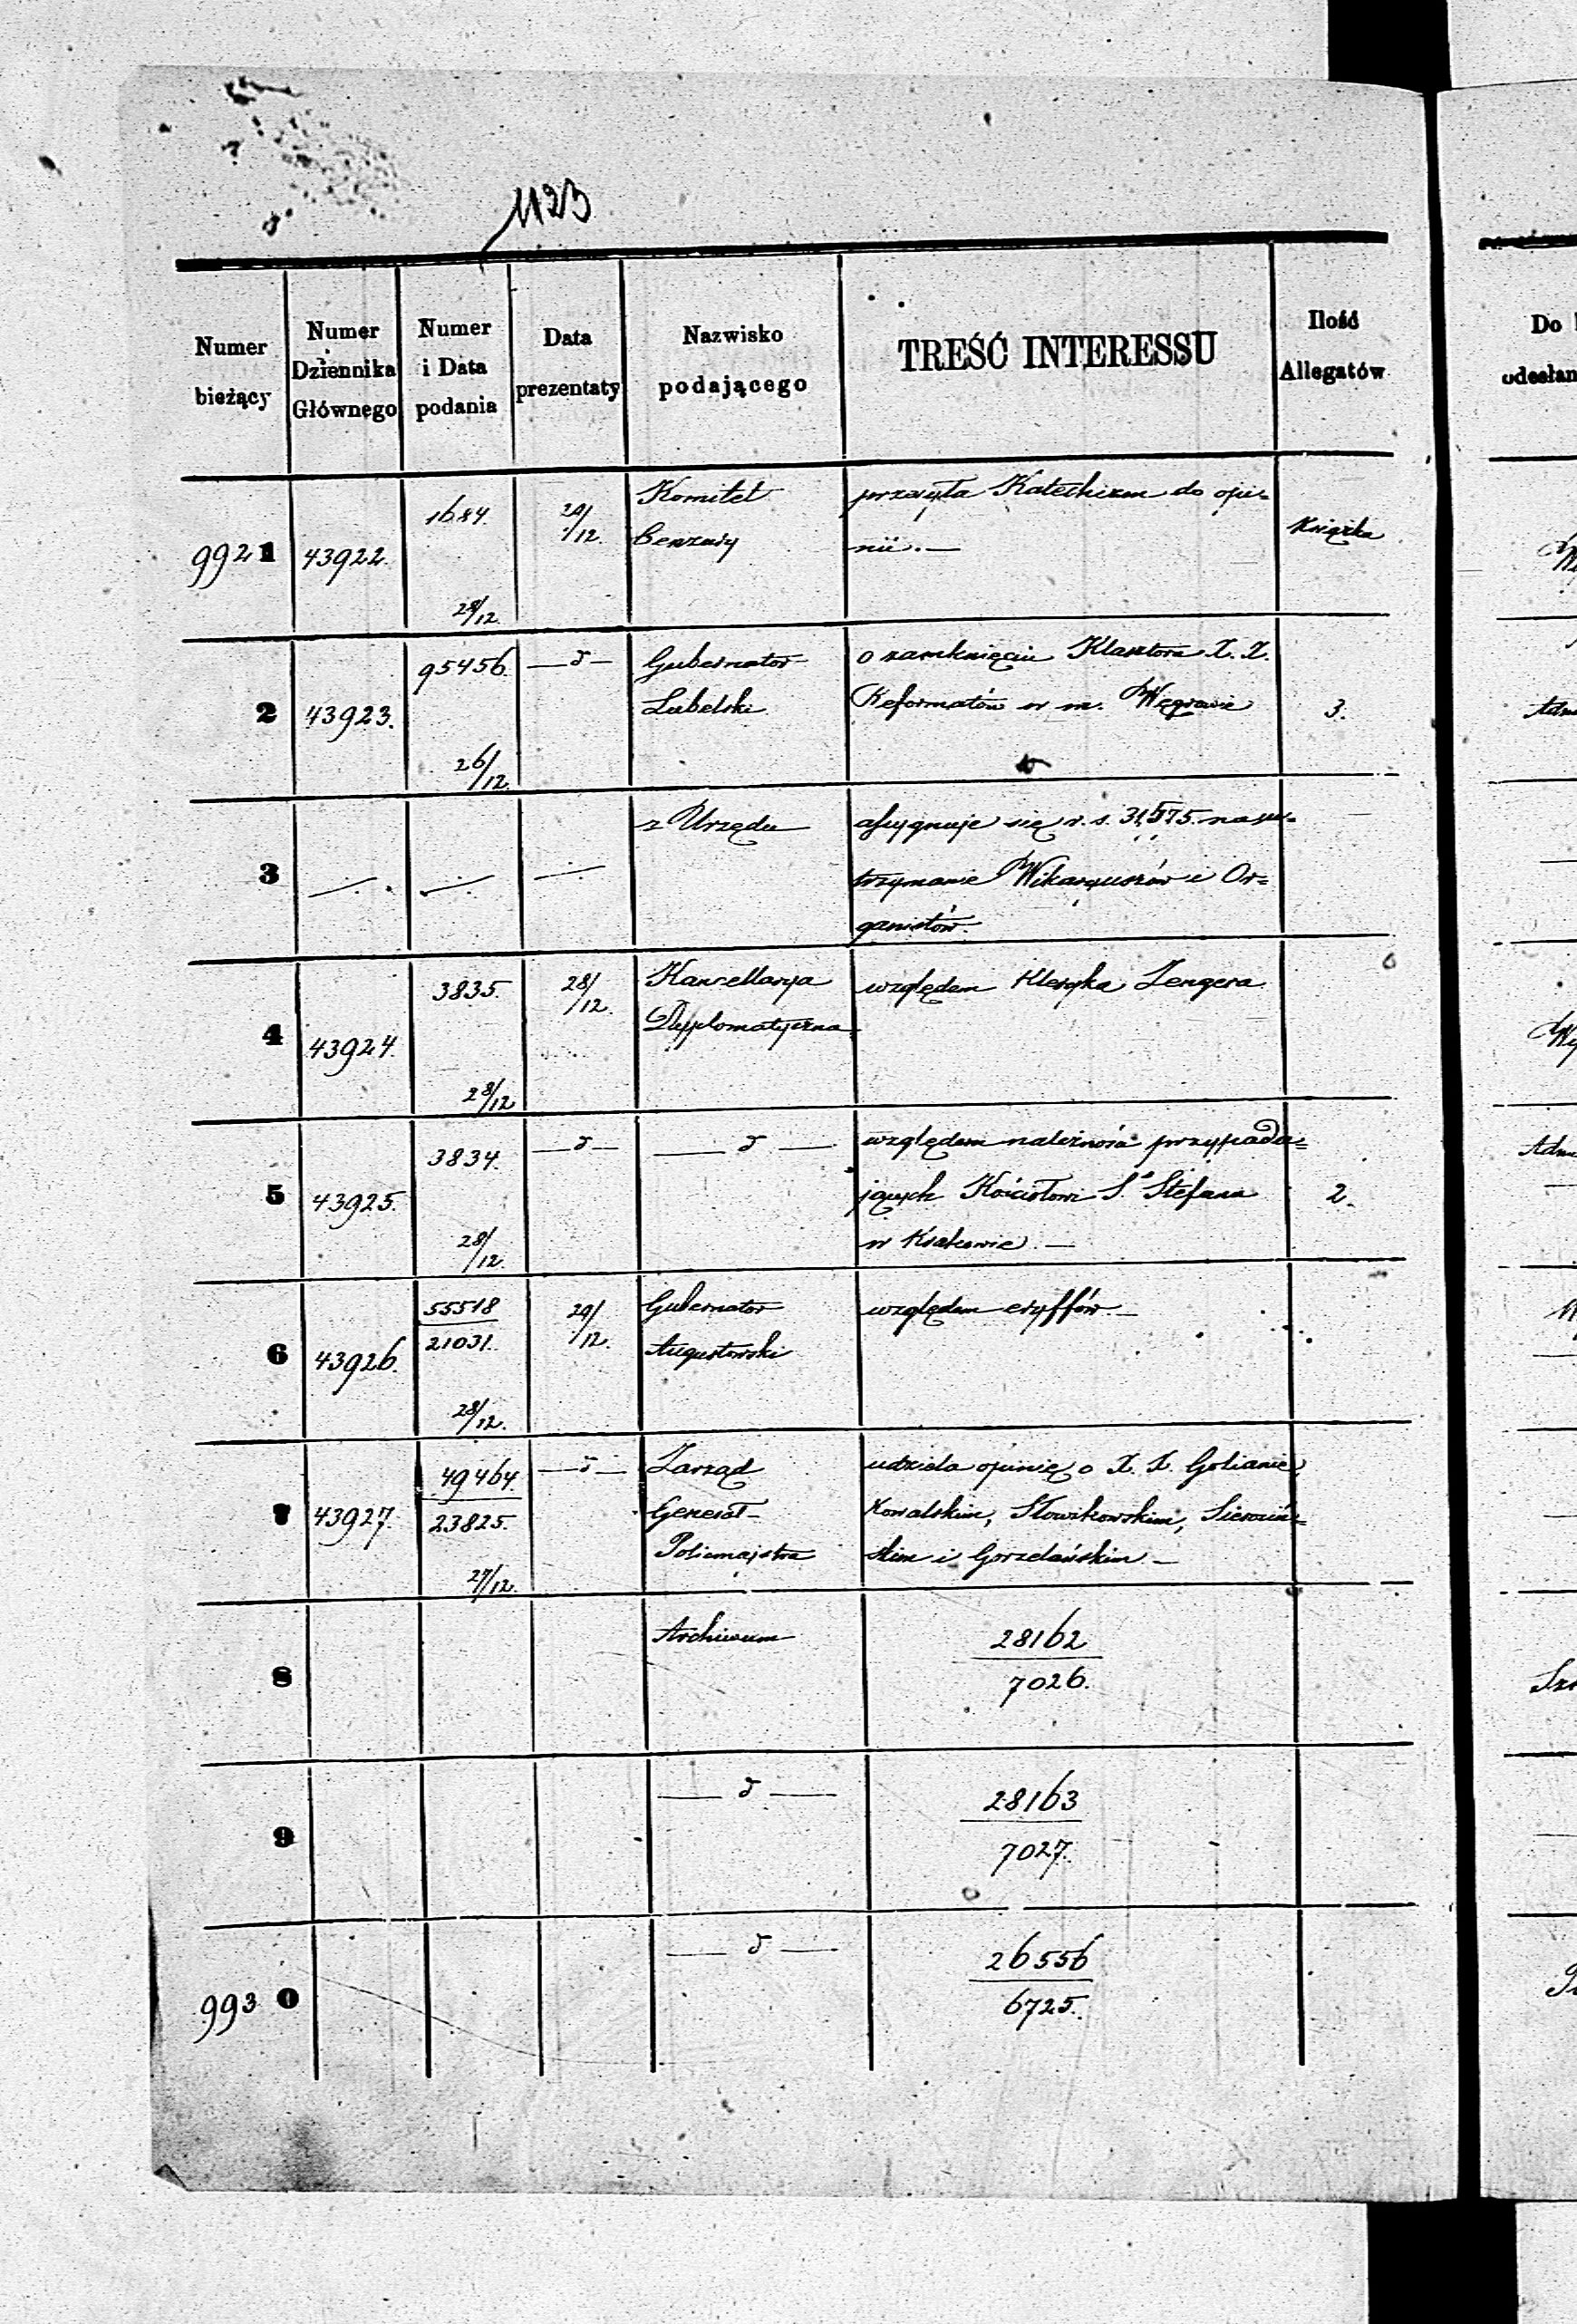 1123
Numer bieżący
Numer Dziennika Głównego
Numer i Data podania
Data prezentaty
Nazwisko podającego
TREŚĆ INTERESSU
Ilość Allegatów
Do
odesłan
9921 43922. 1684. 28/12. 29/12. Komitet Cenzury
przesyła Katechizm do opi-
nii. —
Książka
2 43923. 95456. 26/12. — d — Gubernator Lubelski
o zamknięciu Klasztora X. X.
Reformatów w m. Węgrowie
3.
3 z Urzędu
assygnuje się r. s. 31,575. na u-
trzymanie Wikaryuszów i Or-
ganistów.
4 43924. 3835. 28/12 28/12. Kancellarya Dyplomatyczna
względem Kleryka Zengera
5 43925. 3834. 28/12. — d — — d —
względem należności przypada-
jących Kościołowi S. Stefana
w Krakowie. —
2.
6 43926. 55518/21031. 28/12. 29/12. Gubernator Augustowski
względem eryffów. —
7 43927. 49464./23825. 27/12. — d — Zarząd Generał- Policmajstra
udziela opinię o X. X. Golianie,
Kowalskim, Słowikowskim, Sierociń-
skim i Gorzelańskim —
8 Archiwum
28162
7026.
9 — d —
28163
7027.
9930 — d —
26556
6725.